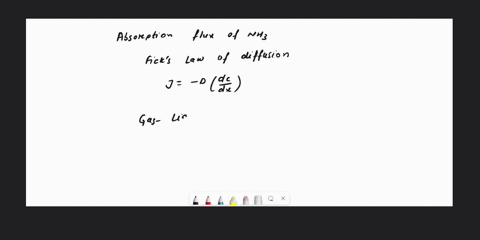 Absorption flux of NH3
Fick's Law of diffusion
J = -D (dc/dx)
Gas- Lir